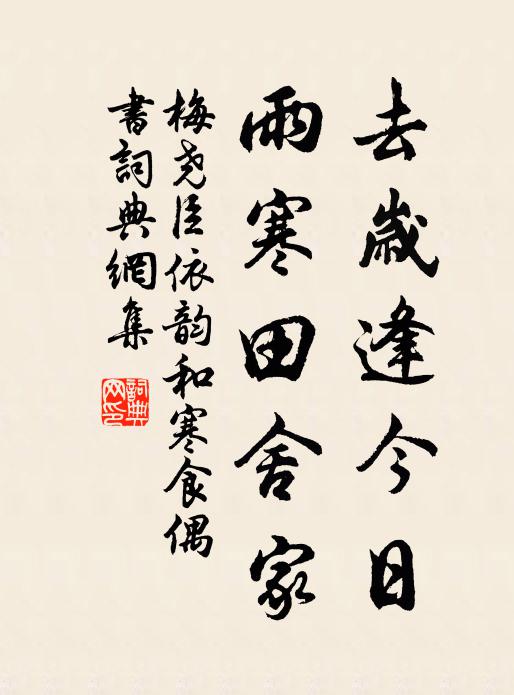 去歲逢今日
雨寒田舍家
梅尧臣依韵和寒食偶
書詞典網集
詞典
网印